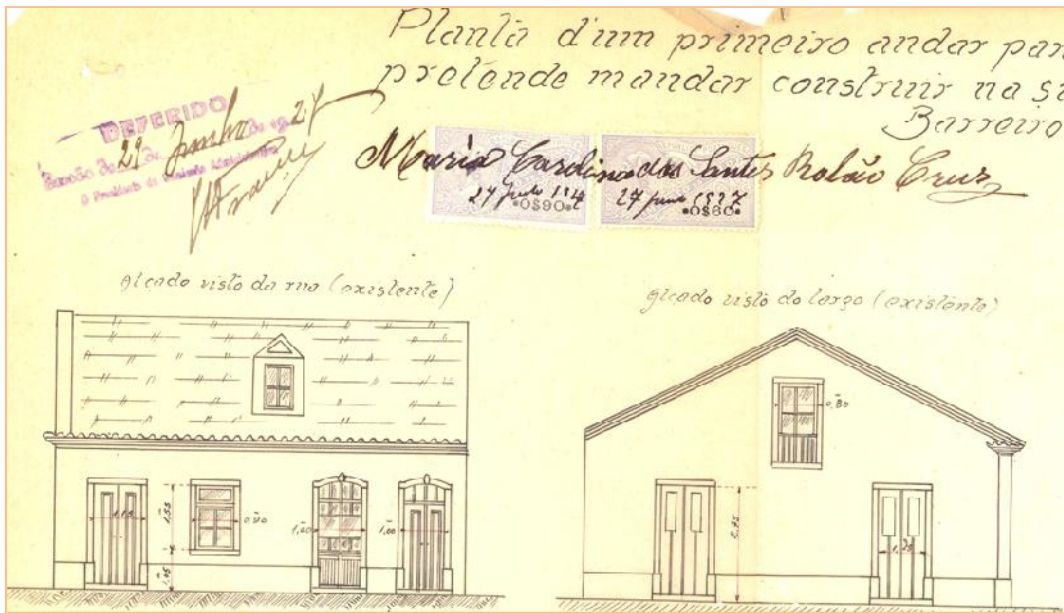 Planta d'um primeiro andar par
pretende mandar construir na su
Barreiro
DEFERIDO
29 de Junho de 1927
O Presidente da Comissão Administrativa
Maria Cardina dos Santos Rolão Cruz
27 junho 1927
0$90
27 junho 1927
0$60
Alçado visto da rua (existente)
Alçado visto do largo (existente)
0,80
1,15
1,55
0,90
1,00
1,00
2,75